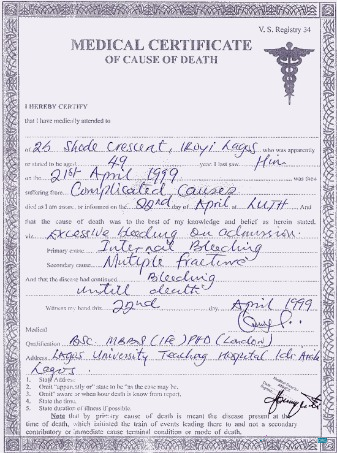 V. S. Registry 34
MEDICAL CERTIFICATE
OF CAUSE OF DEATH
I HEREBY CERTIFY
that I have medically attended to
of 26 Shode Crescent, Ikoyi Lagos who was apparently
or stated to be aged 49 year: I last saw Him
on the 21st April 1999 was then
suffering from Complicated Causes
died as I am aware, or informed on the 22nd day of April at LUTH And
that the cause of death was to the best of my knowledge and belief as herein stated.
viz Excessive bleeding on admission.
Primary cause Internal Bleeding
Secondary cause Mutiple fractures
And that the disease had continued Bleeding
untill death
Witness my hand this 22nd day April 1999
Medical
Qualification BSC. MBBS (IFE) PHD (London)
Address Lagos University Teaching Hospital Idi Araba
Lagos.
1. Staff Address
2. Omit "apparently or" state to be "as the case may be.
3. Omit" aware or when hour death is know from report.
4. State the time.
5. State duration of illness if possible.
Note that by primary cause of death is meant the disease present at the
time of death, which initiated the train of events leading there to and not a secondary
contributory or immediate cause terminal condition or mode of death.